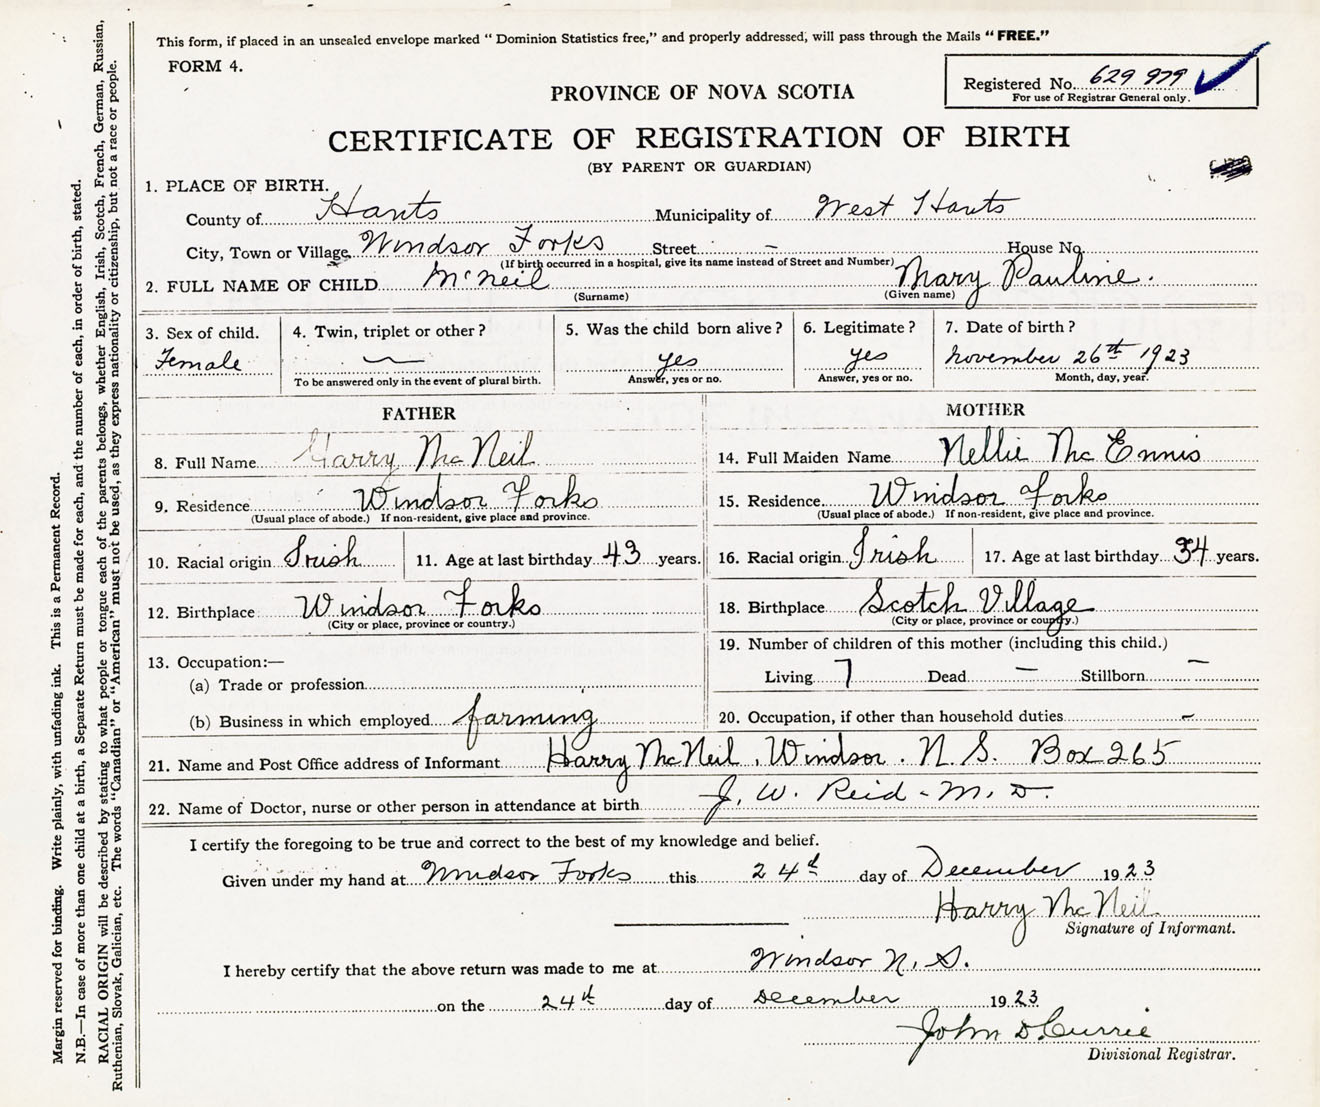 This form, if placed in an unsealed envelope marked "Dominion Statistics free," and properly addressed, will pass through the Mails "FREE."
FORM 4.
Registered No. 629 979
For use of Registrar General only.
PROVINCE OF NOVA SCOTIA
CERTIFICATE OF REGISTRATION OF BIRTH
(BY PARENT OR GUARDIAN)
1. PLACE OF BIRTH.
County of Hants Municipality of West Hants
City, Town or Village Windsor Forks Street – House No.
(If birth occurred in a hospital, give its name instead of Street and Number)
2. FULL NAME OF CHILD McNeil Mary Pauline.
(Surname) (Given name)
3. Sex of child. 4. Twin, triplet or other? 5. Was the child born alive? 6. Legitimate? 7. Date of birth?
Female — yes yes November 26th 1923
To be answered only in the event of plural birth. Answer, yes or no. Answer, yes or no. Month, day, year.
FATHER
8. Full Name Harry McNeil
9. Residence Windsor Forks
(Usual place of abode.) If non-resident, give place and province.
10. Racial origin Irish 11. Age at last birthday 43 years.
12. Birthplace Windsor Forks
(City or place, province or country.)
13. Occupation:—
(a) Trade or profession
(b) Business in which employed farming
MOTHER
14. Full Maiden Name Nellie McEnnis
15. Residence Windsor Forks
(Usual place of abode.) If non-resident, give place and province.
16. Racial origin Irish 17. Age at last birthday 34 years.
18. Birthplace Scotch Village
(City or place, province or country.)
19. Number of children of this mother (including this child.)
Living 7 Dead — Stillborn —
20. Occupation, if other than household duties –
21. Name and Post Office address of Informant Harry McNeil, Windsor. N.S. Box 265
22. Name of Doctor, nurse or other person in attendance at birth J. W. Reid - M. D.
I certify the foregoing to be true and correct to the best of my knowledge and belief.
Given under my hand at Windsor Forks this 24th day of December 1923
Harry McNeil
Signature of Informant.
I hereby certify that the above return was made to me at Windsor N. S.
on the 24th day of December 1923
John D Currie
Divisional Registrar.
Margin reserved for binding. Write plainly, with unfading ink. This is a Permanent Record.
N.B.—In case of more than one child at a birth, a Separate Return must be made for each, and the number of each, in order of birth, stated.
RACIAL ORIGIN will be described by stating to what people or tongue each of the parents belongs, whether English, Irish, Scotch, French, German, Russian,
Ruthenian, Slovak, Galician, etc. The words "Canadian" or "American" must not be used, as they express nationality or citizenship, but not a race or people.